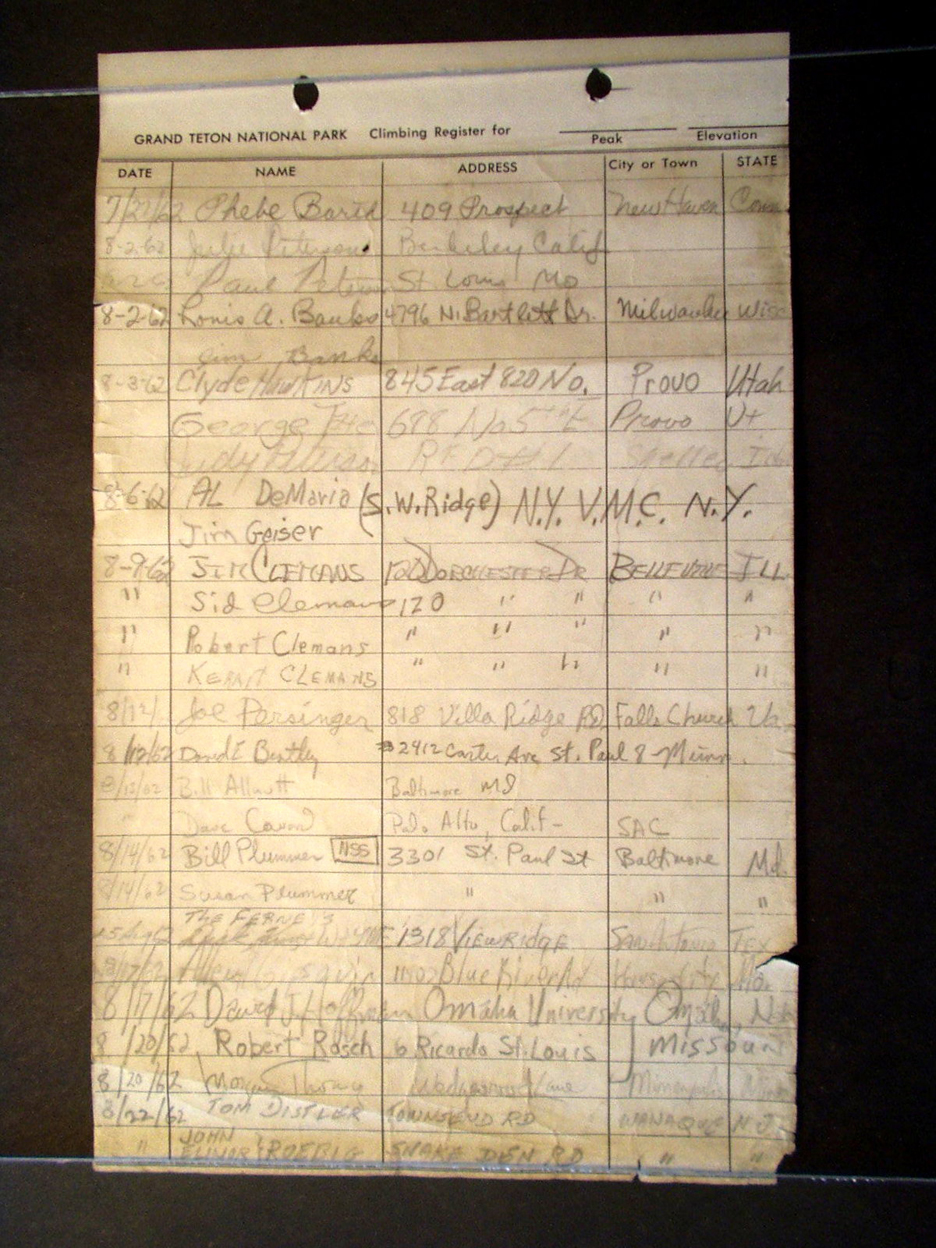 GRAND TETON NATIONAL PARK Climbing Register for
Peak Elevation
DATE NAME ADDRESS City or Town STATE
7/27/62 Phebe 409 Prospect New Haven Conn.
8-2-62 Julie Peterson Berkeley Calif
Paul St. Louis Mo
8-2-62 Louis A. Banks 4796 N. Bartlett Dr. Milwaukee Wisc
Jim Banks
8-3-62 Clyde Hawkins 845 East 820 No. Provo Utah
George 688 No 5th E Provo Ut
Judy RFD #1
8-6-62 AL DeMaria (S.W. Ridge) N.Y. V.M.C. N.Y.
Jim Geiser
8-9-62 JIM CLEMANS 120 DORCHESTER DR BELLEVILLE ILL
" Sid Clemans 120 " " " "
" Robert Clemans " " " " "
" KERMIT CLEMANS " " " " "
8/12/ Joe Persinger 818 Villa Ridge RD Falls Church Va
8/12/62 David E Bentley #2412 Carter Ave St. Paul 8 - Minn.
8/12/62 Bill Allnutt Baltimore Md
" Dave Palo Alto, Calif - SAC
8/14/62 Bill Plummer NSS 3301 St. Paul St Baltimore Md.
8/14/62 Susan Plummer " " "
THE FERNE'S
1318 VIEWRIDGE San Antonio TEX
8/17/62 Blue River Rd Mo.
8/17/62 David J. Hoffman Omaha University Omaha, Neb
8/20/62 Robert Rosch 6 Ricardo St. Louis Missouri
8/20/62 Morgan Lane Minneapolis Minn
8/22/62 TOM DISTLER TOWNSEND RD WANAQUE N.J.
JOHN
" ELINOR ROEBIG SNAKE DEN RD " "